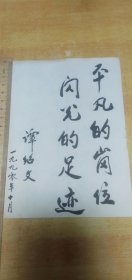 平凡的岗位
闪光的足迹
谭绍文
一九九〇年十月